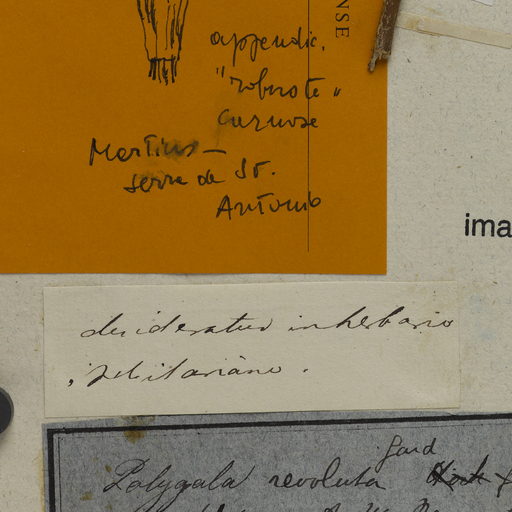 ENSE
appendic.
"robuste"
curvose
Martius —
serra de St.
Antonio
ima
desideratur in herbario
Gard
Polygala revoluta